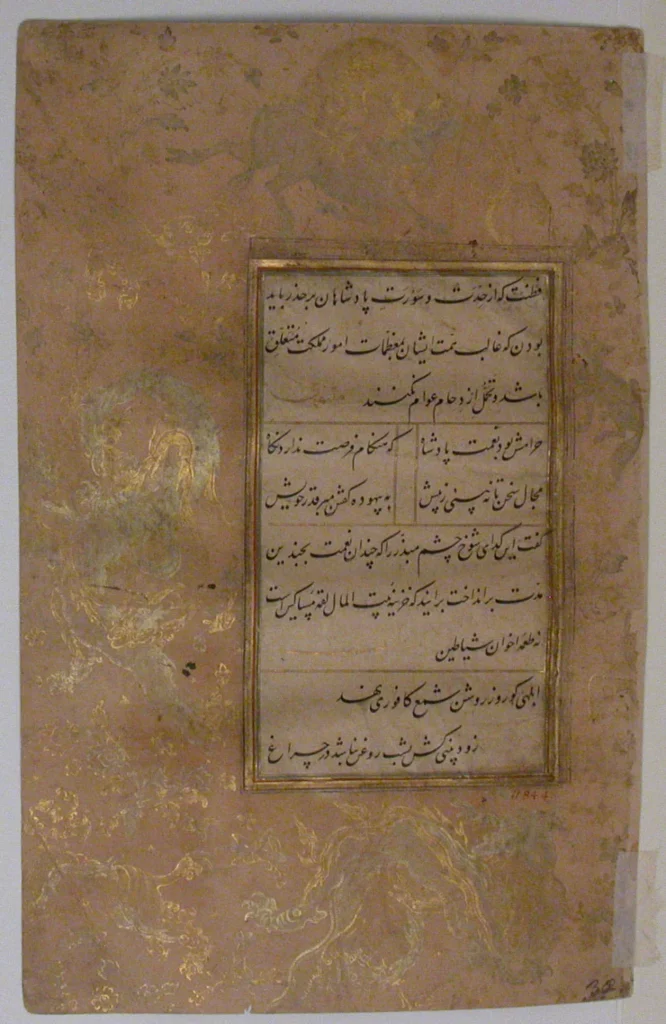 فطنت که از حدت و سورت پادشاهان بر حذر باید
بودن که غالب همت ایشان بمعظمات امور مملکت متعلق
باشد و تحمل ازدحام عوام نکنند
حرامش بود نعمت پادشاه که هنگام فرصت ندارد نگاه
مجال سخن تا نه بینی ز پیش به بیهوده گفتن مبر قدر خویش
گفت این گدای شوخ چشم مبذر را که چندان نعمت بچندین
مدت برانداخت برانید که خزینه بیت المال لقمه مساکین است
نه طعمه اخوان شیاطین
ابلهی کو روز روشن شمع کافوری نهد
زود بینی کش بشب روغن نباشد در چراغ